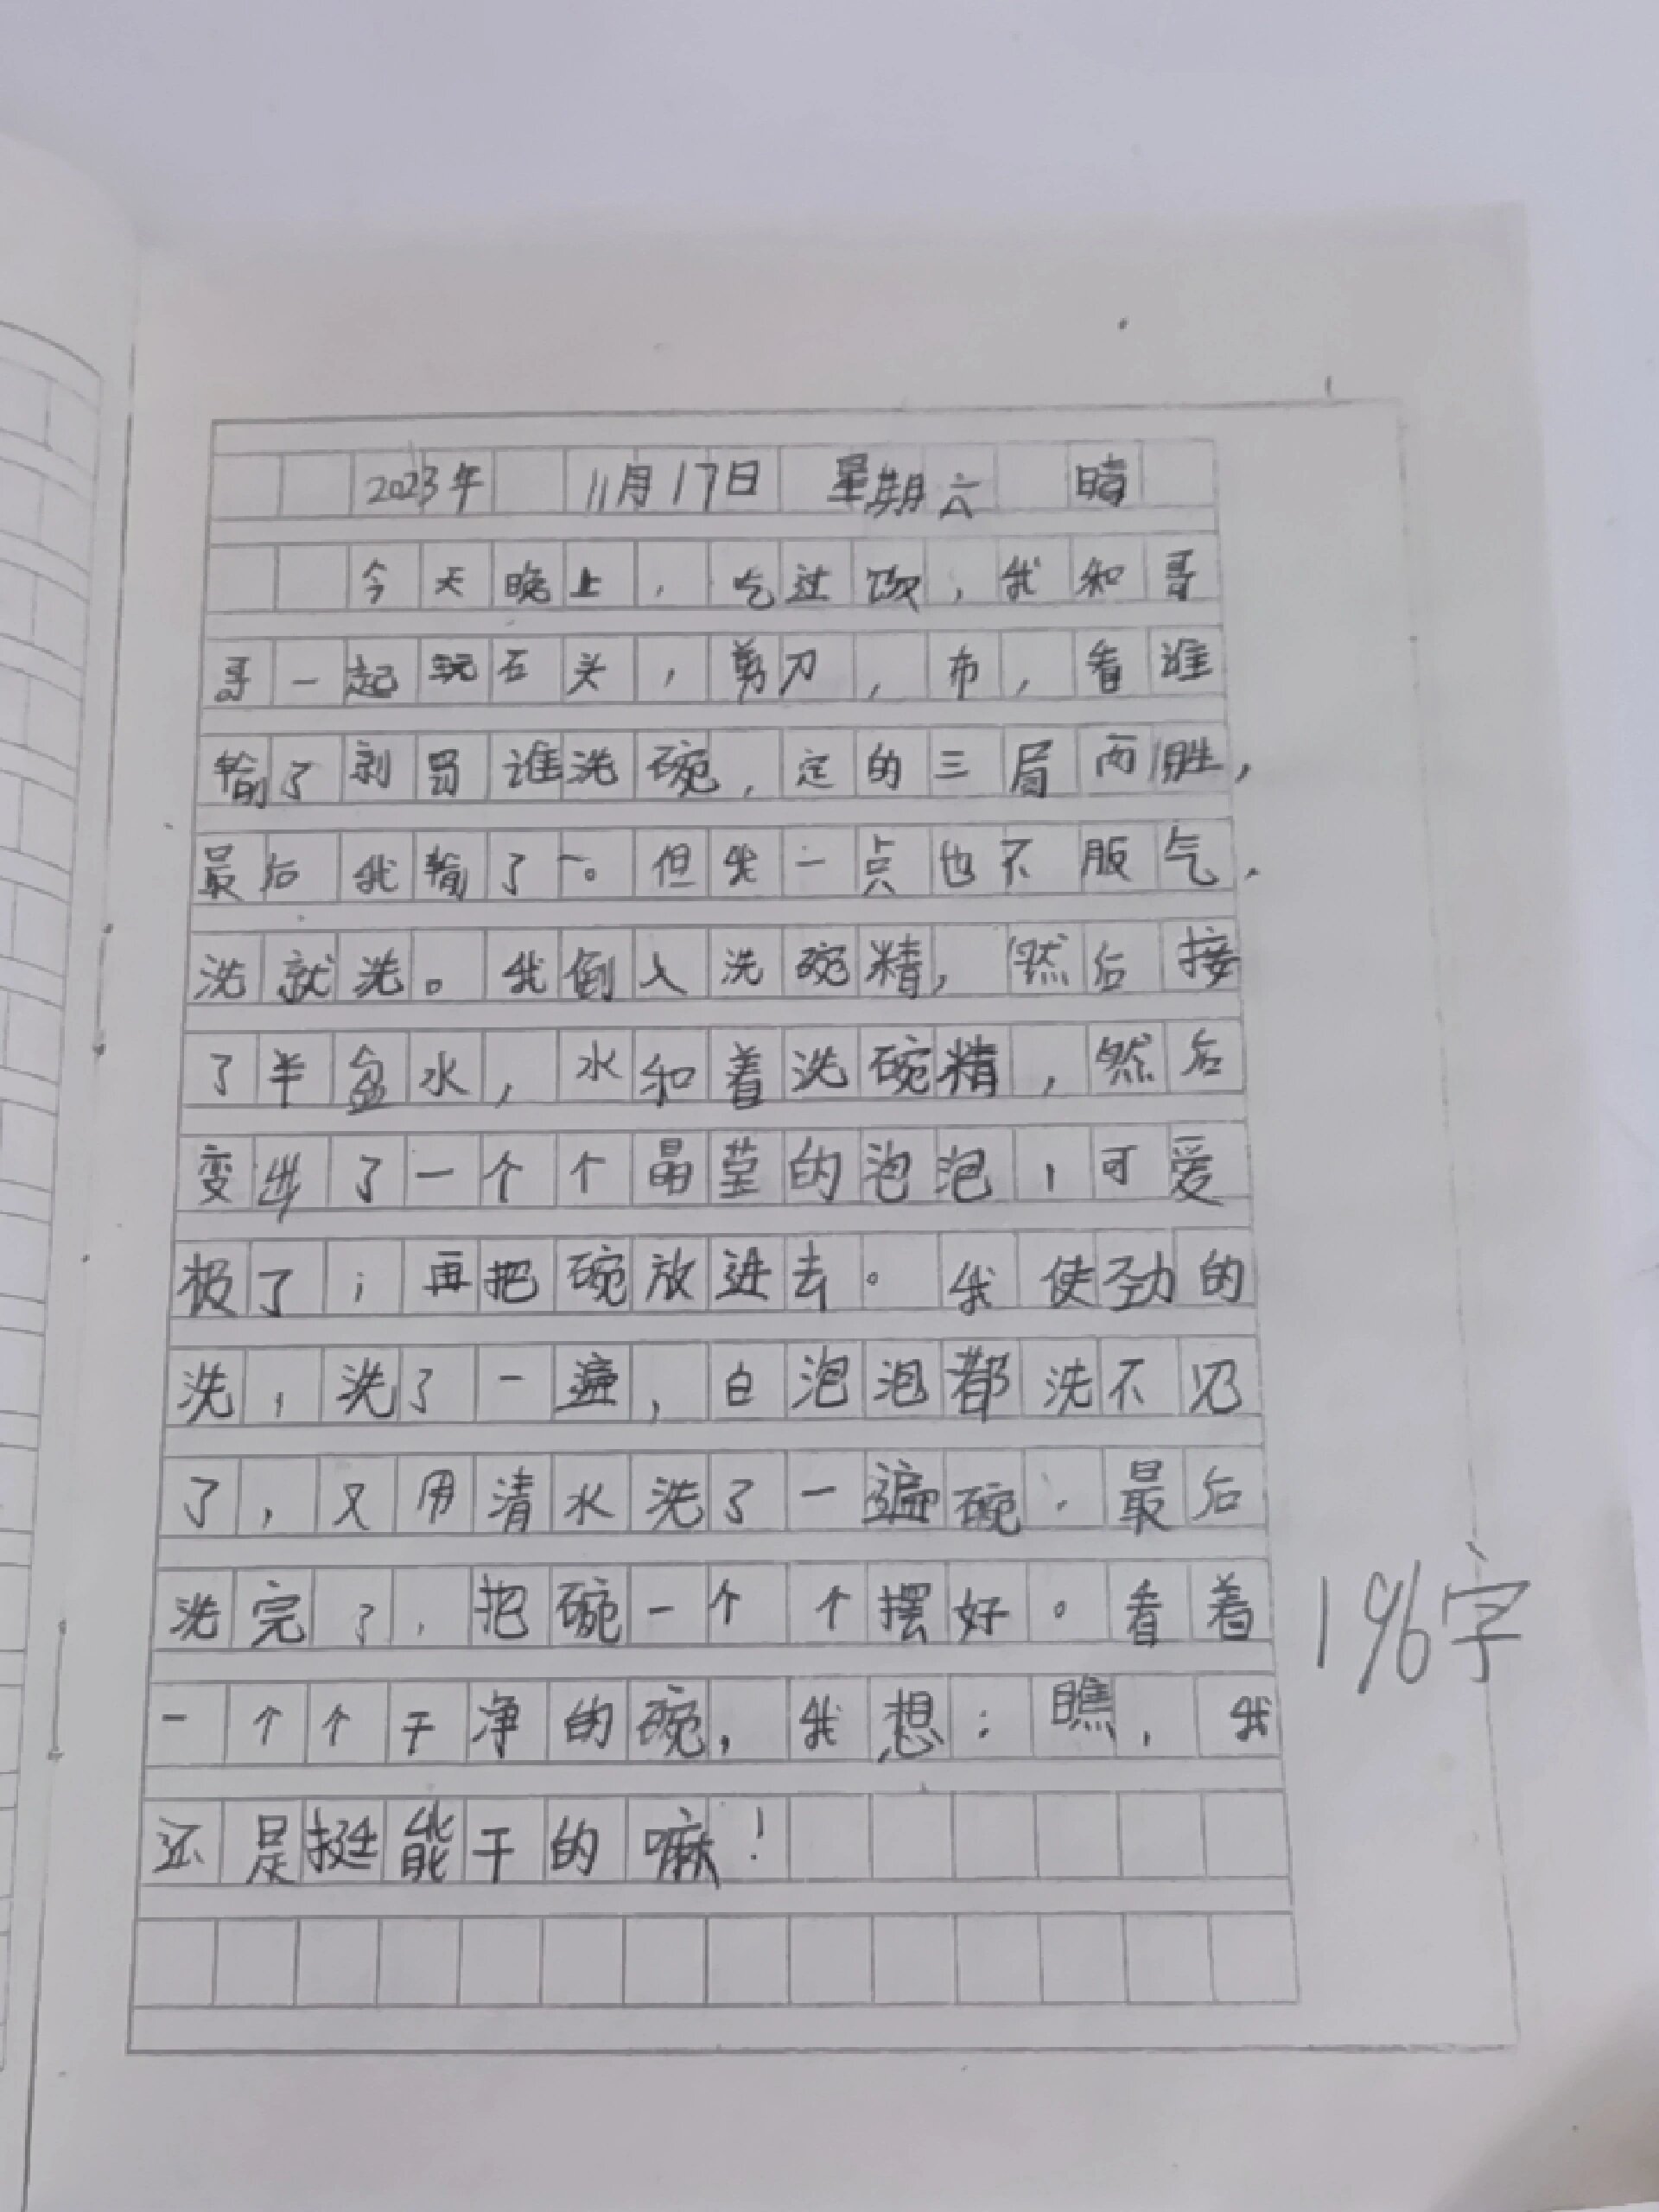 2023年 11月17日 星期六 晴
今天晚上，吃过饭，我和哥
哥一起玩石头，剪刀，布，看谁
输了就罚谁洗碗，定的三局两胜，
最后我输了。但我一点也不服气，
洗就洗。我倒入洗碗精，然后接
了半盆水，水和着洗碗精，然后
变出了一个个晶莹的泡泡，可爱
极了；再把碗放进去。我使劲的
洗，洗了一遍，白泡泡都洗不见
了，又用清水洗了一遍碗，最后
洗完了，把碗一个个摆好。看着
一个个干净的碗，我想：瞧，我
还是挺能干的嘛！
196字